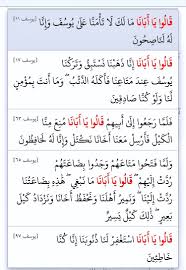 قَالُوا يَا أَبَانَا مَا لَكَ لَا تَأْمَنَّا عَلَىٰ يُوسُفَ وَإِنَّا [يوسف ١١]
لَهُ لَنَاصِحُونَ
قَالُوا يَا أَبَانَا إِنَّا ذَهَبْنَا نَسْتَبِقُ وَتَرَكْنَا [يوسف ١٧]
يُوسُفَ عِندَ مَتَاعِنَا فَأَكَلَهُ الذِّئْبُ ۖ وَمَا أَنتَ بِمُؤْمِنٍ
لَّنَا وَلَوْ كُنَّا صَادِقِينَ
فَلَمَّا رَجَعُوا إِلَىٰ أَبِيهِمْ قَالُوا يَا أَبَانَا مُنِعَ مِنَّا [يوسف ٦٣]
الْكَيْلُ فَأَرْسِلْ مَعَنَا أَخَانَا نَكْتَلْ وَإِنَّا لَهُ لَحَافِظُونَ
وَلَمَّا فَتَحُوا مَتَاعَهُمْ وَجَدُوا بِضَاعَتَهُمْ [يوسف ٦٥]
رُدَّتْ إِلَيْهِمْ ۖ قَالُوا يَا أَبَانَا مَا نَبْغِي ۖ هَٰذِهِ بِضَاعَتُنَا
رُدَّتْ إِلَيْنَا ۖ وَنَمِيرُ أَهْلَنَا وَنَحْفَظُ أَخَانَا وَنَزْدَادُ كَيْلَ
بَعِيرٍ ۖ ذَٰلِكَ كَيْلٌ يَسِيرٌ
قَالُوا يَا أَبَانَا اسْتَغْفِرْ لَنَا ذُنُوبَنَا إِنَّا كُنَّا [يوسف ٩٧]
خَاطِئِينَ